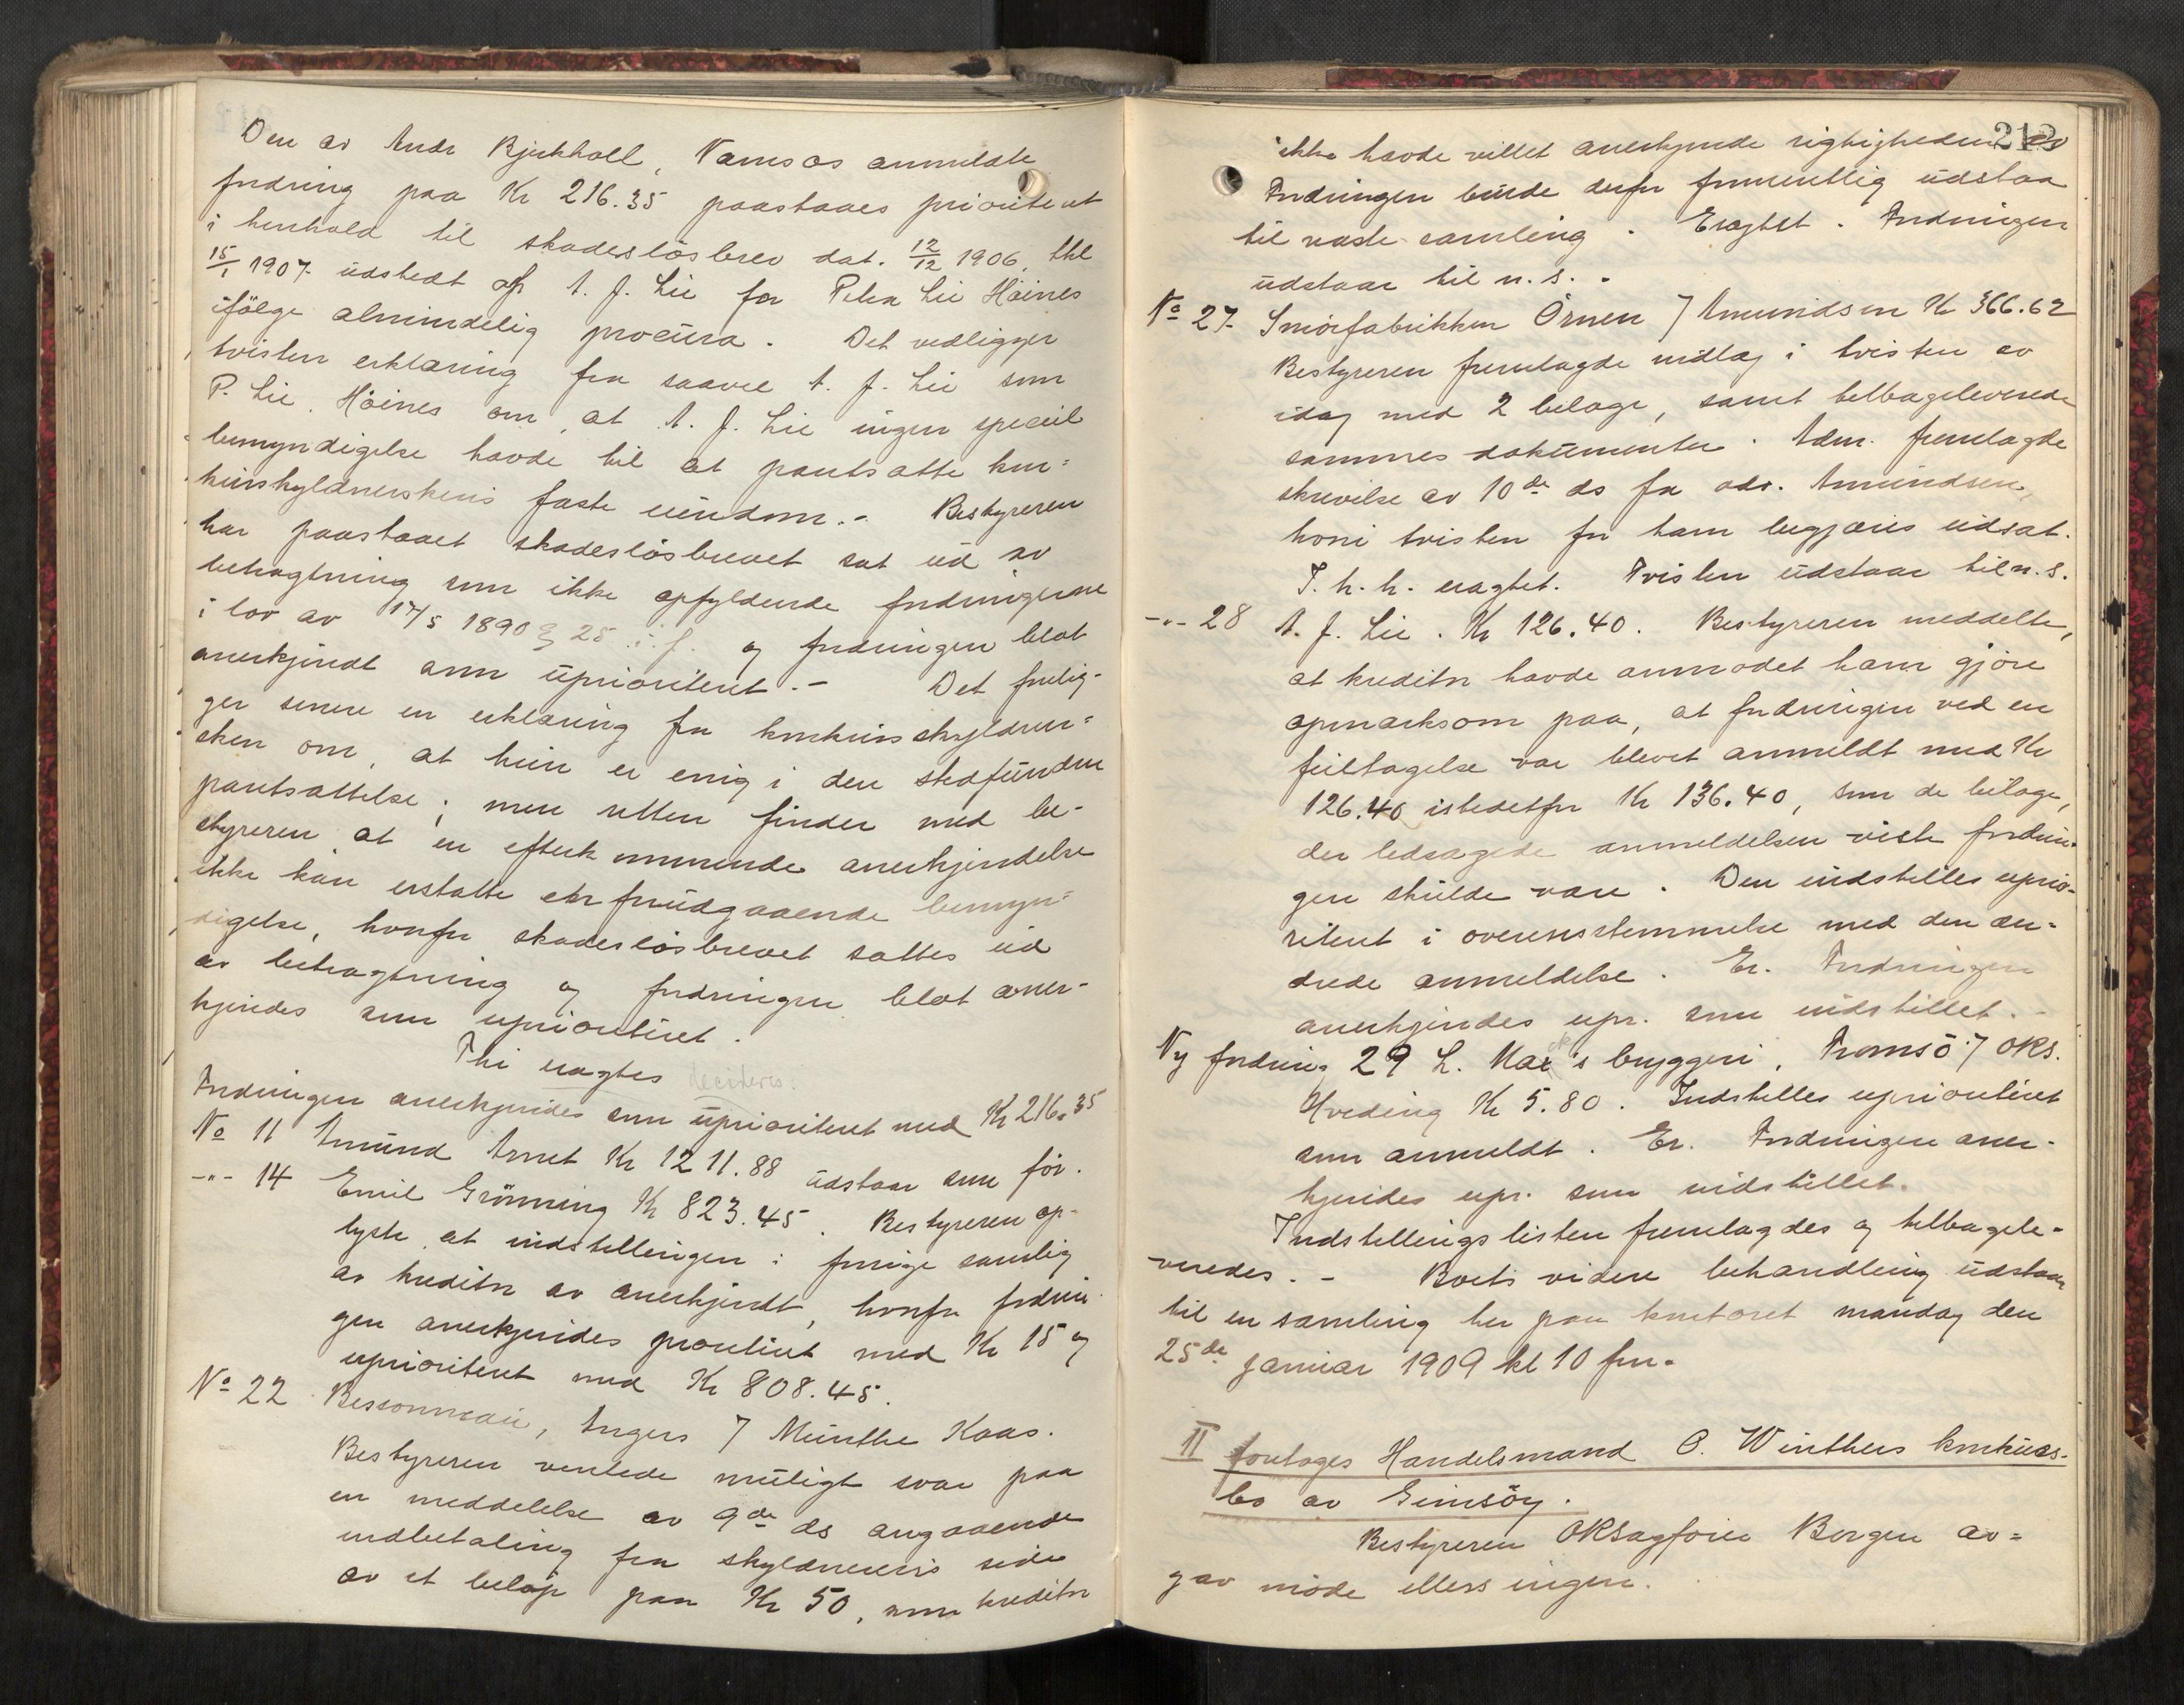 Den av Andr Bjerkholl, Namsos anmeldte
fordring paa Kr 216.35 paastaaes prioritert
i henhold til skadeslösbrev dat. 12/12 1906, thl
15/1 1907 udstedt af A. J. Lie for Petra Lie Höines
ifölge almindelig procura. Det vedligger
tvisten erklæring fra saavel A. J. Lie som
P. Lie Höines om, at A. J. Lie ingen speciel
bemyndigelse havde til at pantsætte kon=
kursskyldnerskens faste eiendom. - Bestyreren
har paastaaet skadeslösbrevet sat ud av
betragtning som ikke opfyldende fordringerne
i lov av 17/5 1890 § 25 i. f. og fordringen blot
anerkjendt som uprioritert. - Det forelig-
ger senere en erklæring fra konkursskyldner=
sken om, at hun er enig i den stedfundne
pantsættelse; men retten finder med be-
styreren, at en efterkommende anerkjendelse
ikke kan erstatte en forudgaaende bemyn=
digelse, hvorfor skadeslösbrevet sættes ud
av betragtning og fordringen blot aner-
kjendes som uprioritert.
Thi eragtes decideres:
Fordringen anerkjendes som uprioritert med Kr 216.35
No 11 Amund Kr 1211.88 udstaar som för.
-"- 14 Emil Grönning Kr 823.45. Bestyreren op-
lyste, at indstillingen i forrige samling
av kreditor er anerkjendt, hvorfor fordrin-
gen anerkjendes prioritert med Kr 15 og
uprioritert med Kr 808.45.
No 22 Bessonneau, Angers / Munthe Kaas.
Bestyreren ventede muligt svar paa
en meddelelse av 9de ds angaaende
indbetaling fra skyldnerens side
av et belöp paa Kr 50, som kreditor
213
ikke havde villet anerkjende rigtigheden av
Fordringen burde derfor formentlig udstaa
til næste samling. Eragtet. Fordringen
udstaar til n. s. -
No 27 Smörfabrikken Örnen / Amundsen Kr 366.62
Bestyreren fremlagde indlæg i tvisten av
idag med 2 bilage, samt tilbageleverede
sammes dokumenter. Adm. fremlagde
skrivelse av 10de ds fra adv. Amundsen,
hvori tvisten for ham begjæres udsat.
T. h. h. eragtet. Tvisten udstaar til n. s.
-"- 28 A. J. Lie. Kr 126.40. Bestyreren meddelte,
at kreditor havde anmodet ham gjöre
opmærksom paa, at fordringen ved en
feiltagelse var blevet anmeldt med Kr
126.40 istedetfor Kr 136.40, som de bilage,
der ledsagede anmeldelsen viste fordrin-
gen skulde være. Den indstilles uprio-
ritert i overensstemmelse med den æn-
drede anmeldelse. Er. Fordringen
anerkjendes upr. som indstillet. -
Ny fordring 29 L. Mack's bryggeri, Tromsö / OKS.
Hveding Kr 5.80. Indstilles uprioritert
som anmeldt. Er. Fordringen aner-
kjendes upr. som indstillet.
Indstillingslisten fremlagdes og tilbagele-
veredes. - Boets videre behandling udstaar
til en samling her paa kontoret mandag den
25de januar 1909 kl 10 fm.
II foretages Handelsmand O. Winthers konkurs-
bo av Gimsöy.
Bestyreren OKSagförer Borgen av=
gav möde ellers ingen.